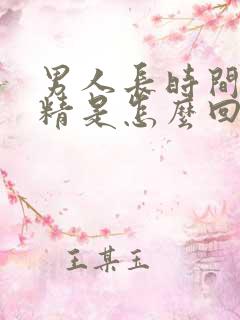 男人長時間
精是怎麼回
王某玉